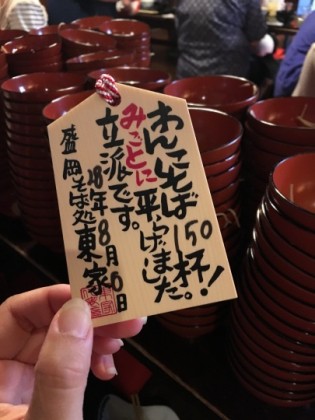 わんこそば150杯！
みごとに平らげました。
立派です。
'18年8月6日
盛岡そば処東家